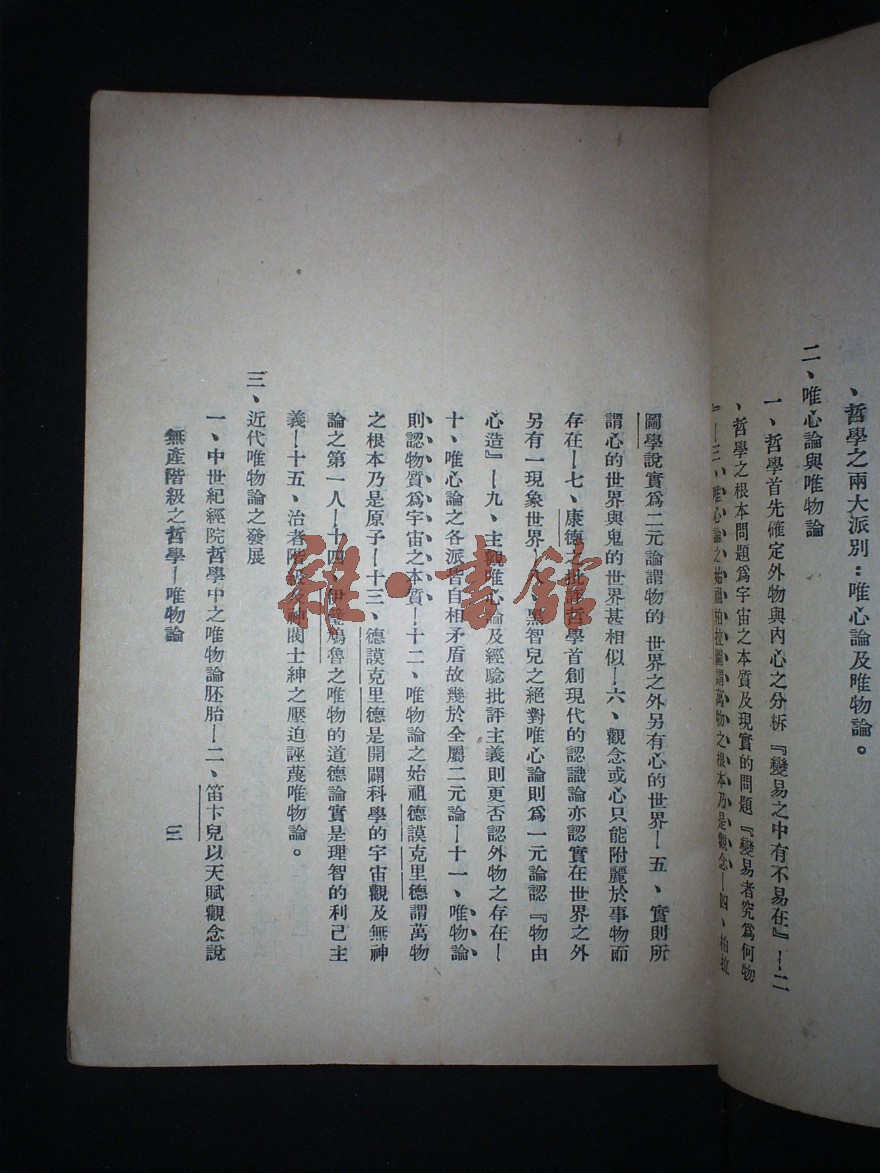 、哲學之兩大派別：唯心論及唯物論。
二、唯心論與唯物論
一、哲學首先確定外物與內心之分析『變易之中有不易在』—二
、哲學之根本問題爲宇宙之本質及現實的問題『變易者究爲何物
』—三、唯心論之始祖柏拉圖謂萬物之根本乃是觀念—四、柏拉
圖學說實爲二元論謂物的世界之外另有心的世界—五、實則所
謂心的世界與鬼的世界甚相似—六、觀念或心只能附麗於事物而
存在—七、康德之批評哲學首創現代的認識論亦認實在世界之外
另有一現象世界—八、黑智兒之絕對唯心論則爲一元論認『物由
心造』—九、主觀唯心論及經驗批評主義則更否認外物之存在—
十、唯心論之各派皆自相矛盾故幾於全屬二元論—十一、唯物論
則認物質爲宇宙之本質—十二、唯物論之始祖德謨克里德謂萬物
之根本乃是原子—十三、德謨克里德是開闢科學的宇宙觀及無神
論之第一人—十四、伊壁鳩魯之唯物的道德論實是理智的利己主
義—十五、治者階級及神閥士紳之壓迫誣衊唯物論。
三、近代唯物論之發展
一、中世紀經院哲學中之唯物論胚胎—二、笛卡兒以天賦觀念說
無產階級之哲學—唯物論
三
雜·書館